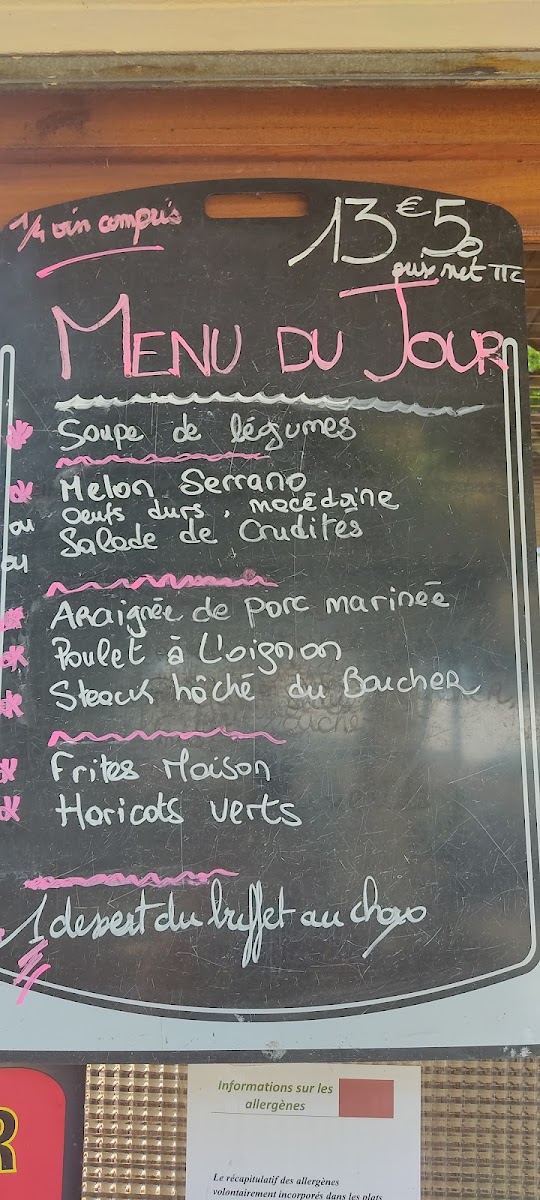 1/4 vin compris
13€50
prix net TTC
MENU DU JOUR
Soupe de légumes
Melon Serrano
ou oeufs durs, macédoine
ou Salade de Crudités
Araignée de porc marinée
Poulet à L'oignon
Steack hâché du Boucher
Frites Maison
Haricots verts
1 dessert du buffet au choix
Informations sur les
allergènes
R
Le récapitulatif des allergènes
volontairement incorporés dans les plats